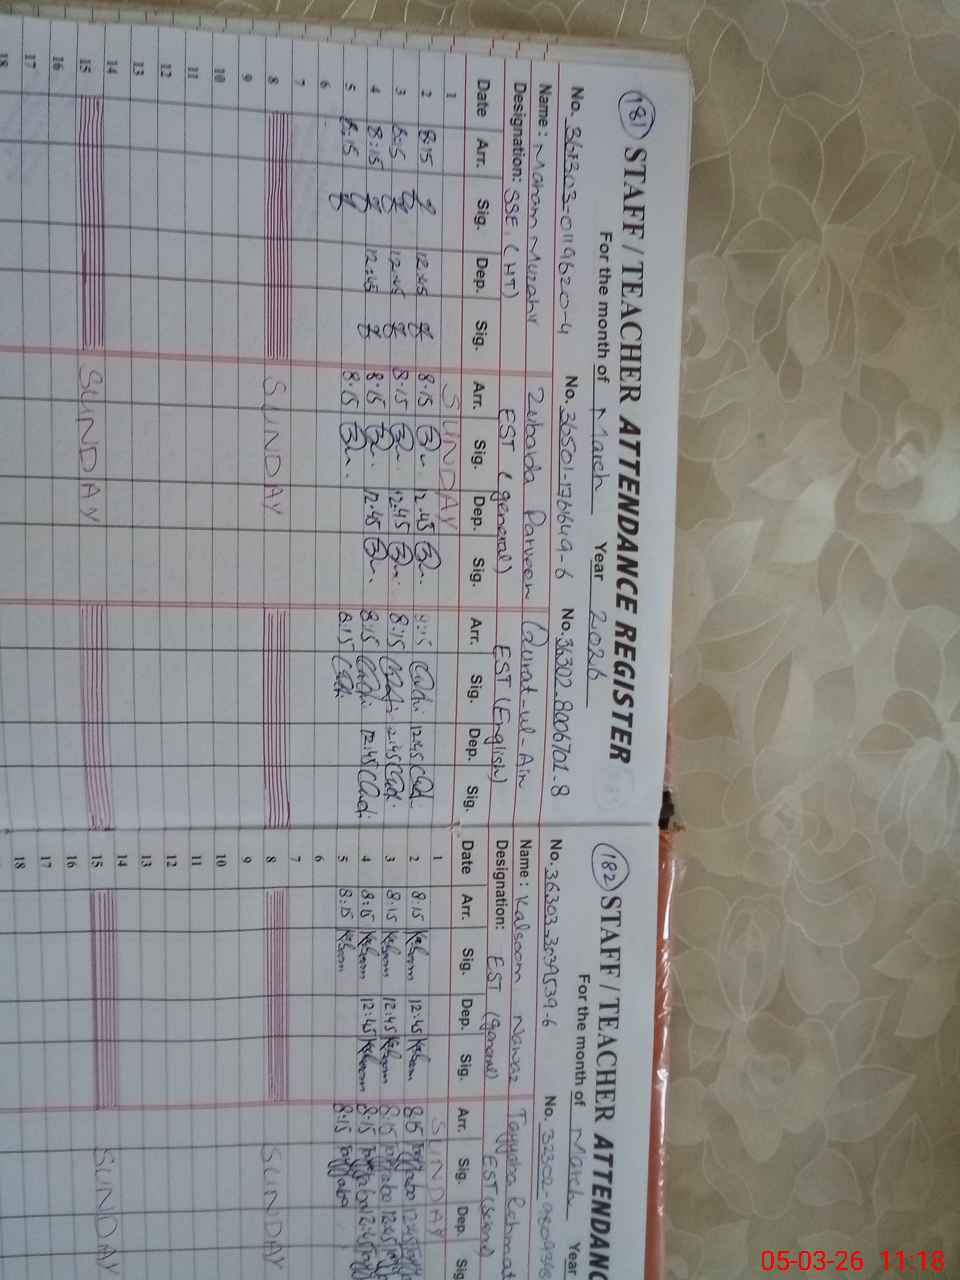 181 STAFF / TEACHER ATTENDANCE REGISTER
For the month of March Year 2026
No. 36303-0119620-4 No. 36501-1766649-6 No. 36302-8006701-8
Name : Maham Murahil Zubaida Parveen Qurat-ul-Ain
Designation: SSE, (HT) EST (general) EST (English)
Date Arr. Sig. Dep. Sig. Arr. Sig. Dep. Sig. Arr. Sig. Dep. Sig.
1 SUNDAY
2 8:15 12:45 8:15 12:45 8:15 12:45
3 8:15 12:45 8:15 12:45 8:15 12:45
4 8:15 12:45 8:15 12:45 8:15 12:45
5 8:15 8:15 8:15
6
7
8 SUNDAY
9
10
11
12
13
14
15 SUNDAY
16
17
18
182 STAFF / TEACHER ATTENDANC
For the month of March Year
No. 36303-3039539-6 No. 32302-
Name : Kalsoom Nawaz Tayyaba Rehmat
Designation: EST (general) EST (Scien)
Date Arr. Sig. Dep. Sig. Arr. Sig. Dep. Sig
1 SUNDAY
2 8:15 Kalsoom 12:45 Kalsoom 8:15 Tayyaba 12:45
3 8:15 Kalsoom 12:45 Kalsoom 8:15 Tayyaba 12:45
4 8:15 Kalsoom 12:45 Kalsoom 8:15 Tayyaba 12:45
5 8:15 Kalsoom 8:15 Tayyaba
6
7
8 SUNDAY
9
10
11
12
13
14
15 SUNDAY
16
17
18
05-03-26 11:18